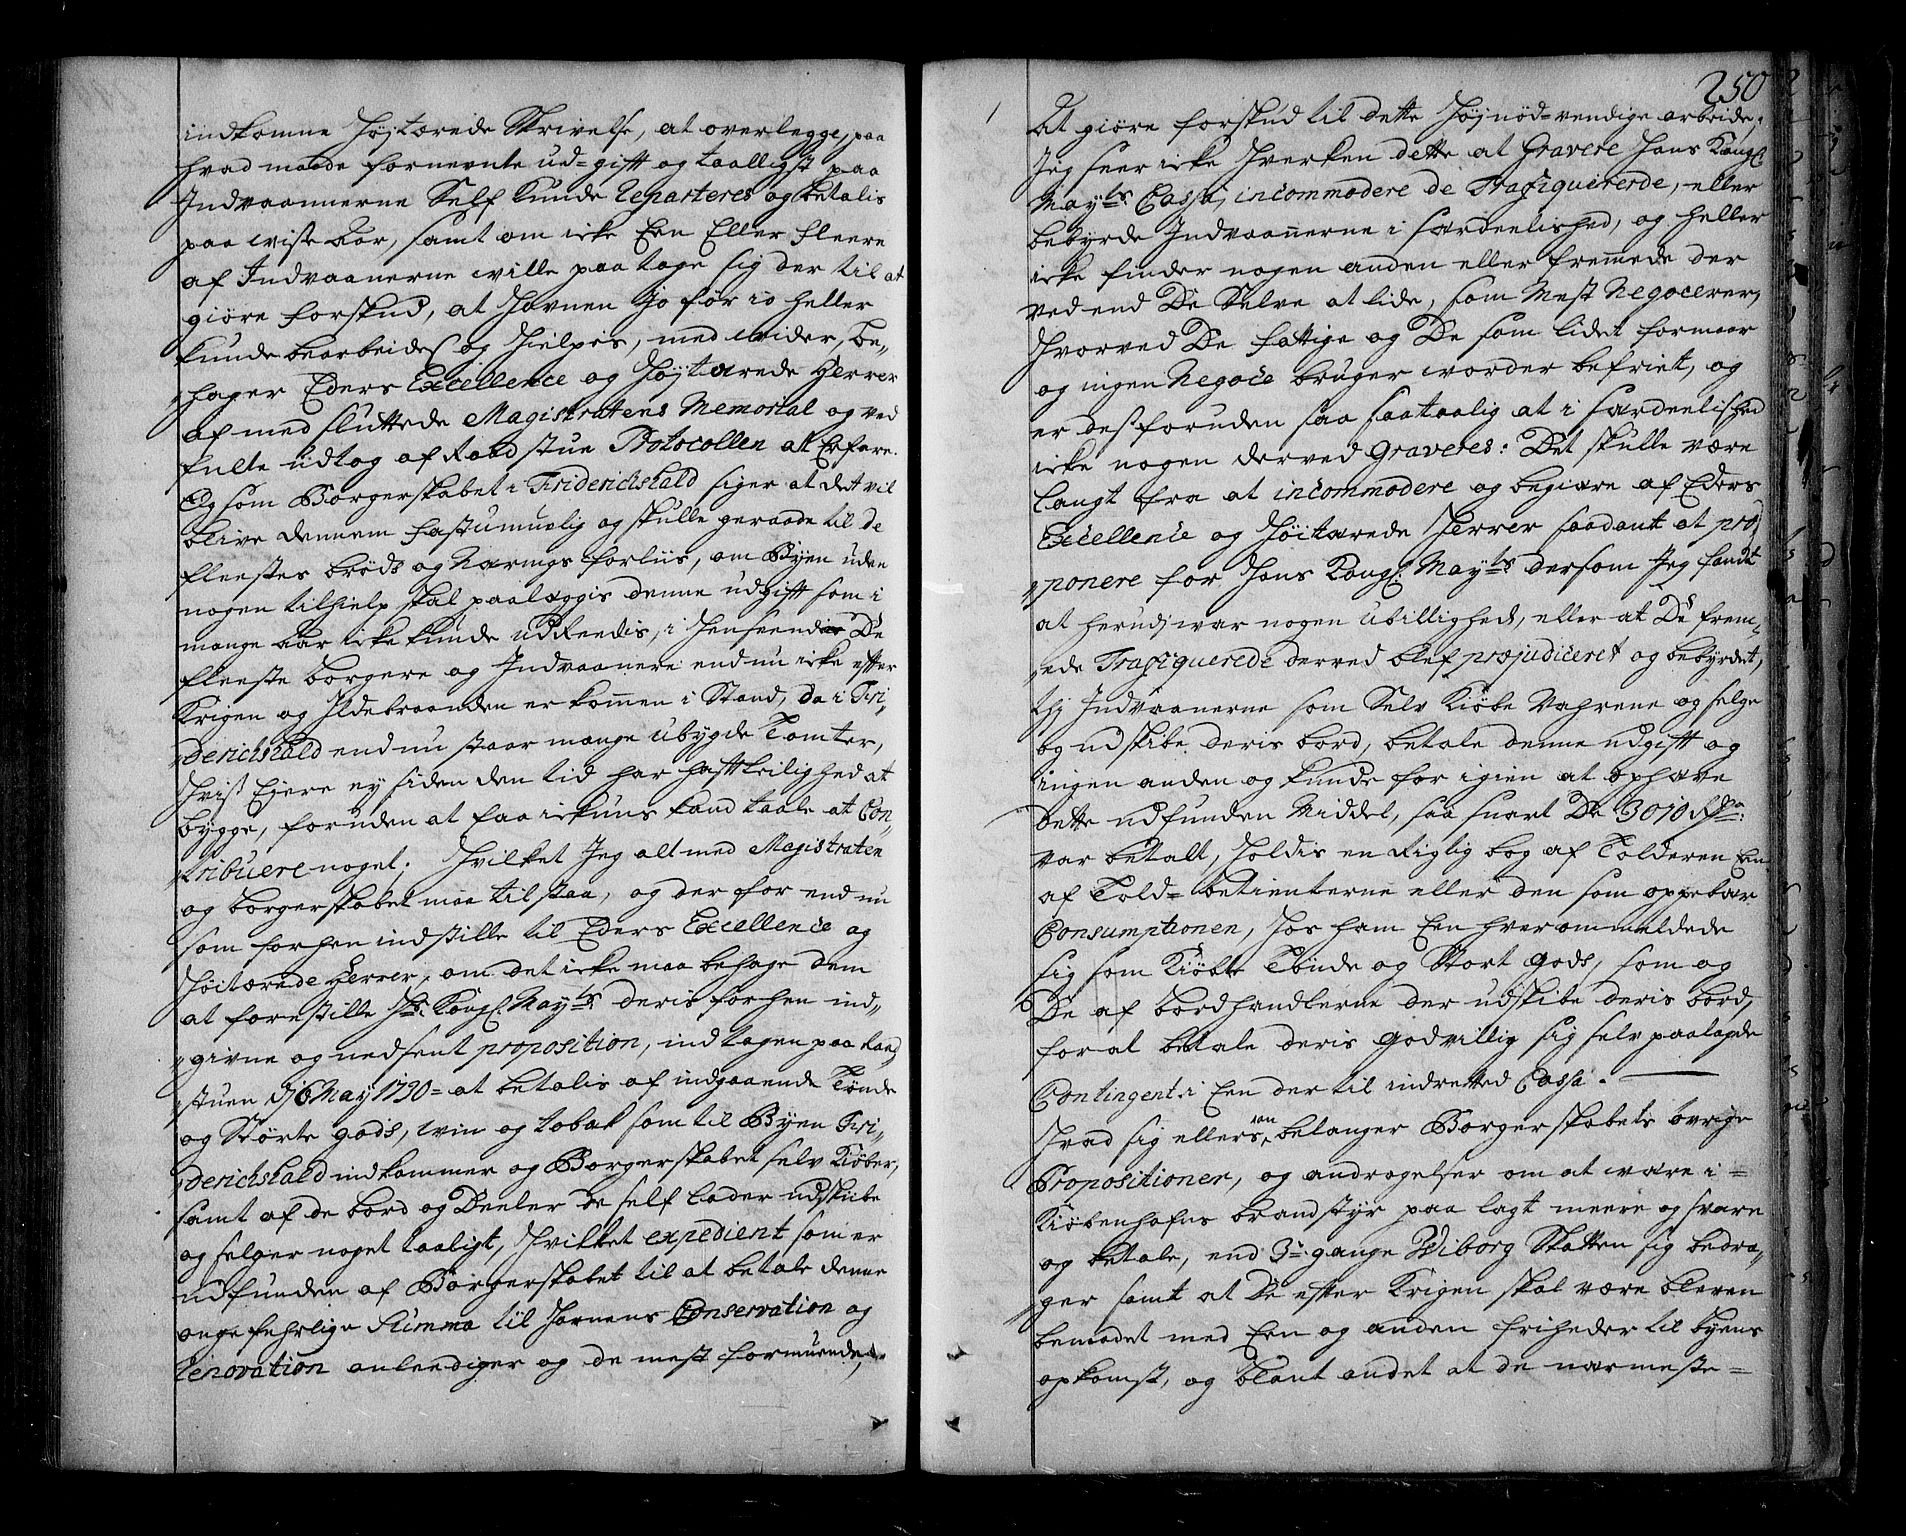 indkomne Høytærede Skrivelse, at overlegge, paa
hvad maade fornevnte ud=gift og taalligst paa
Indvaannerne Self kunde Reparteres og betalis
paa wiste Aar, samt om icke Een Eller fleere
af Indvaanerne wille paa tage sig der til at
giøre forskud, at Havnen jo før io heller
kunde bearbeides og hielpes, med widere, be„
„hager Eders Excellence og Høytærede Herrer
af med sluttede Magistratens Memorial og ved
fulte udtog af Raad stue Protocollen at Erfare.
Og som Borgerskabet i Friderichshald siger at det vil
blive dennem fast umuelig og skulle geraade til de
fleestes brøds og Nærings forliis, om Byen uden
nogen tilhielp skal paalæggis denne udgift som i
mange Aar icke kunde udReedis, i Henseende De
fleeste borgere og Indvaanere endnu icke efter
Krigen og Ildebranden er kommen i Stand, da i Fri„
„derichshald endnu staar mange ubygde Tomter,
hvis Eyere ey siden den tid har haft leilighed at
bygge, foruden at faa ickuns kand taale at Con„
„tribuere noget; Hvilket Jeg alt med Magistraten
og borgerskabet maa tilstaa, og der for endnu
som forhen indstille til Eders Excellence og
Høitærede Herrer, om det icke maa behage dem
at forestille Hs: Kongl: Mayts deris forhen ind„
„givne og nedsent proposition, indtagen paa Raad
„stuen d 16 May 1730 = at betalis af indgaaende Tønde
og Størte gods, win og tobak som til Byen Fri„
„derichshald indkommer og Borgerskabet selv Kiøber,
samt af de bord og Deeler de self lader udskibe
og selger noget taaligt, Hvilket expedient som er
udfunden af Borgerskabet til at betale denne
ongefehrlige Summa til Havnens Conservation og
Renovation anleediger og de mest formuende,
250
At giøre forskud til dette Høynød=vendige arbeide,
Jeg seer icke Hverken dette at Gravere Hans Kongl:
Mayts Cassa, incommodere de Trafiquererde, eller
bebyrde Indvaannerne i særdeelished, og heller
icke finder nogen anden eller fremmede der
ved end De Selve at lide, som Mest Negocerer,
Hvorved De fattige og De som lidet formaar
og ingen Negoce bruger worder befriet, og
er desforuden saa saataalig at i særdeelished
icke nogen derved Graveres: Det skulle være
langt fra at incommodere og begiære af Eders
Excellence og Høitærede Herrer saadant at pro„
„ponere for Hans Kongl: Mayts dersom Jeg fandt
at herudj war nogen ubillighed, eller at De frem„
„ede Trafiquerede derved blef præjudiceret og bebyrdet,
thj Indvaanerne som Selv Kiøbe Vahrene og selge
og udskibe deris bord, betale denne udgift og
ingen anden og kunde for igien at ophæve
dette udfunden Middel, saa snart De 3010 Rdr:
var betalt, holdis en Rigtig bog af Tolderen Een
af Told=betienterne eller den som oppebær
Consumptionen, Hos ham Een hver ommeldede
sig som Kiøbte Tønde og Stort gods, som og
De af bordhandlerne der udskibe deris bord,
for at betale deris godvillig sig selv paalagde
Contingent i Een der til indretted Cassa.
Hvad sig ellers an belanger Borgerskabets øvrige
Propositioner, og andragelser om at være i=
Kiøbenhafns brandstyr paa lagt meere og svare
og betale, end 3de gange Wiborg Skatten sig bedra„
ger samt at De efter Krigen skal være bleven
benaadet med Een og anden friheder til byens
opkomst, og blant andet at de nærmeste=